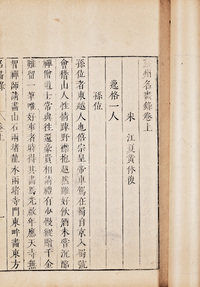 益州名畫錄卷上
宋 江夏黃休復
逸格一人
孫位
孫位者東越人也僖宗皇帝車駕在蜀自京入蜀號
會稽山人性情踈野襟抱超然雖好飲酒未嘗沉酩
禪僧道士常與往還豪貴相請禮有少慢縱贈千金
難留一筆唯好事者時得其畫焉光啟年應天寺無
智禪師請畫山石兩堵龍水兩堵寺門東畔畫東方